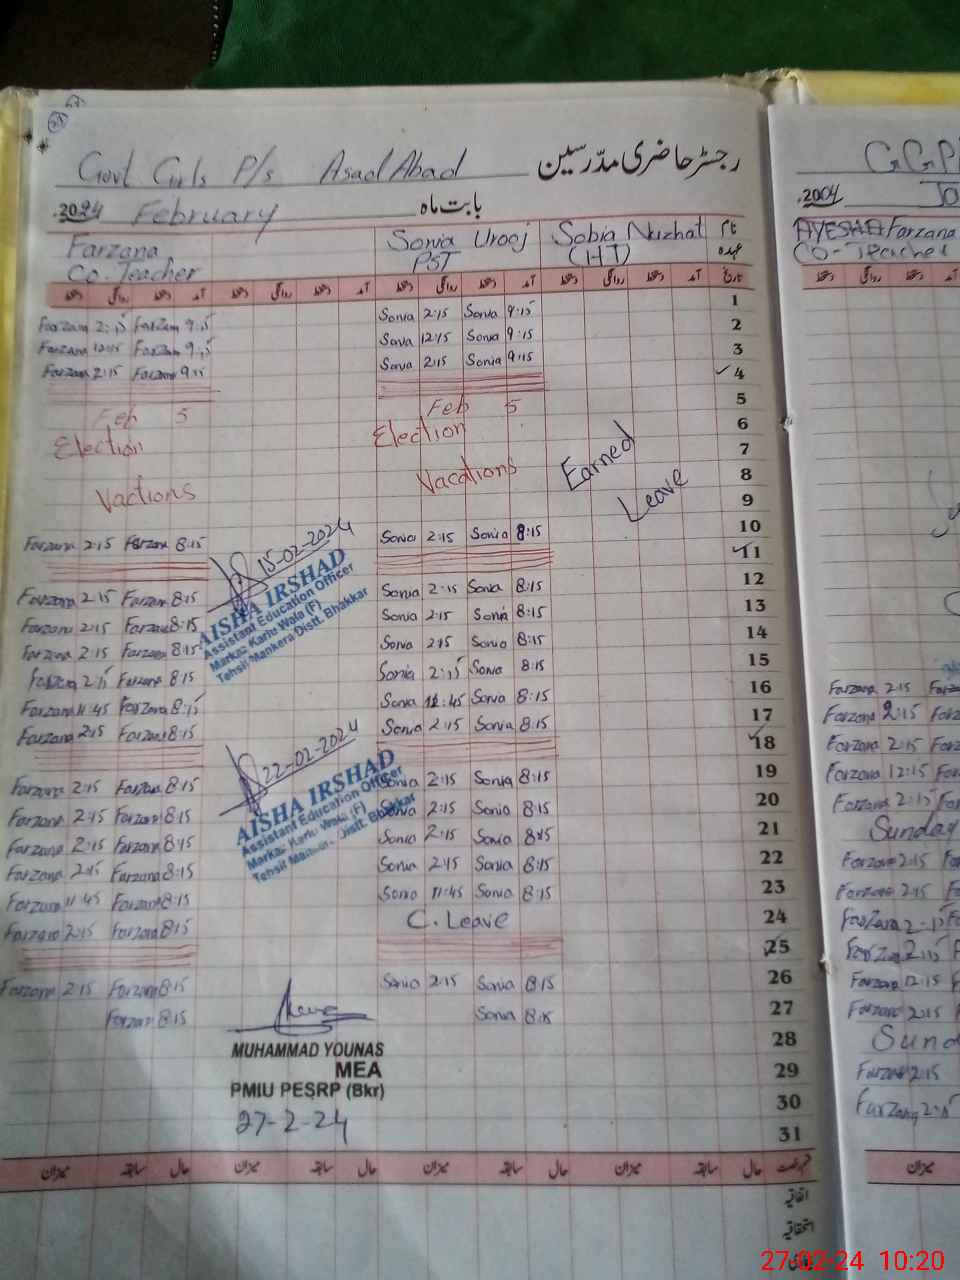 Govt Girls P/s Asad Abad رجسٹر حاضری مدرسین
2024 February بابت ماہ
Farzana Sonia Urooj Sobia Nuzhat نام
Co-Teacher PST (HT) عہدہ
دستخط روانگی دستخط آمد دستخط روانگی دستخط آمد دستخط روانگی دستخط آمد دستخط روانگی دستخط آمد تاریخ
Farzana 2:15 Farzana 9:15 Sonia 2:15 Sonia 9:15 1
Farzana 12:15 Farzana 9:15 Sonia 12:15 Sonia 9:15 2
Farzana 2:15 Farzana 9:15 Sonia 2:15 Sonia 9:15 3
4
Feb 5 Feb 5 5
Election Election 6
7
Vactions Vacations Earned Leave 8
9
Farzana 2:15 Farzana 8:15 Sonia 2:15 Sonia 8:15 10
11
Farzana 2:15 Farzana 8:15 Sonia 2:15 Sonia 8:15 12
Farzana 2:15 Farzana 8:15 Sonia 2:15 Sonia 8:15 13
Farzana 2:15 Farzana 8:15 Sonia 2:15 Sonia 8:15 14
Farzana 2:15 Farzana 8:15 Sonia 2:15 Sonia 8:15 15
Farzana 11:45 Farzana 8:15 Sonia 11:45 Sonia 8:15 16
Farzana 2:15 Farzana 8:15 Sonia 2:15 Sonia 8:15 17
18
Farzana 2:15 Farzana 8:15 Sonia 2:15 Sonia 8:15 19
Farzana 2:15 Farzana 8:15 Sonia 2:15 Sonia 8:15 20
Farzana 2:15 Farzana 8:15 Sonia 2:15 Sonia 8:15 21
Farzana 2:15 Farzana 8:15 Sonia 2:15 Sonia 8:15 22
Farzana 11:45 Farzana 8:15 Sonia 11:45 Sonia 8:15 23
Farzana 2:15 Farzana 8:15 C. Leave 24
25
Farzana 2:15 Farzana 8:15 Sonia 2:15 Sonia 8:15 26
Farzana 8:15 Sonia 8:15 27
28
29
30
31
15-02-2024
AISHA IRSHAD
Assistant Education Officer
Markaz Karlu Wala (F)
Tehsil Mankera Distt. Bhakkar
22-02-2024
AISHA IRSHAD
Assistant Education Officer
Markaz Karlu Wala (F)
Tehsil Mankera Distt. Bhakkar
MUHAMMAD YOUNAS
MEA
PMIU PESRP (Bkr)
27-2-24
میزان سابقہ حال میزان سابقہ حال میزان سابقہ حال میزان سابقہ حال
اتفاقیہ
استحقاقیہ
2004
AYESHA Farzana
Co-Teacher
Farzana 2:15
Farzana 2:15
Farzana 2:15
Farzana 12:15
Farzana 2:15
Sunday
Farzana 2:15
Farzana 2:15
Farzana 2:15
Farzana 2:15
Farzana 12:15
Farzana 2:15
Farzana 2:15
Farzana 2:15
میزان
27-02-24 10:20